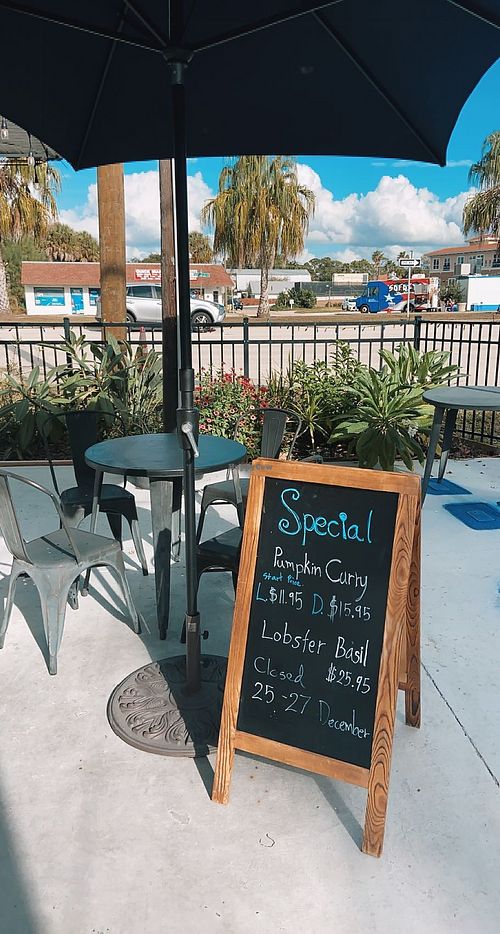 Special
Pumpkin Curry
start Price
L $11.95 D. $15.95
Lobster Basil
$25.95
Closed
25 - 27 December